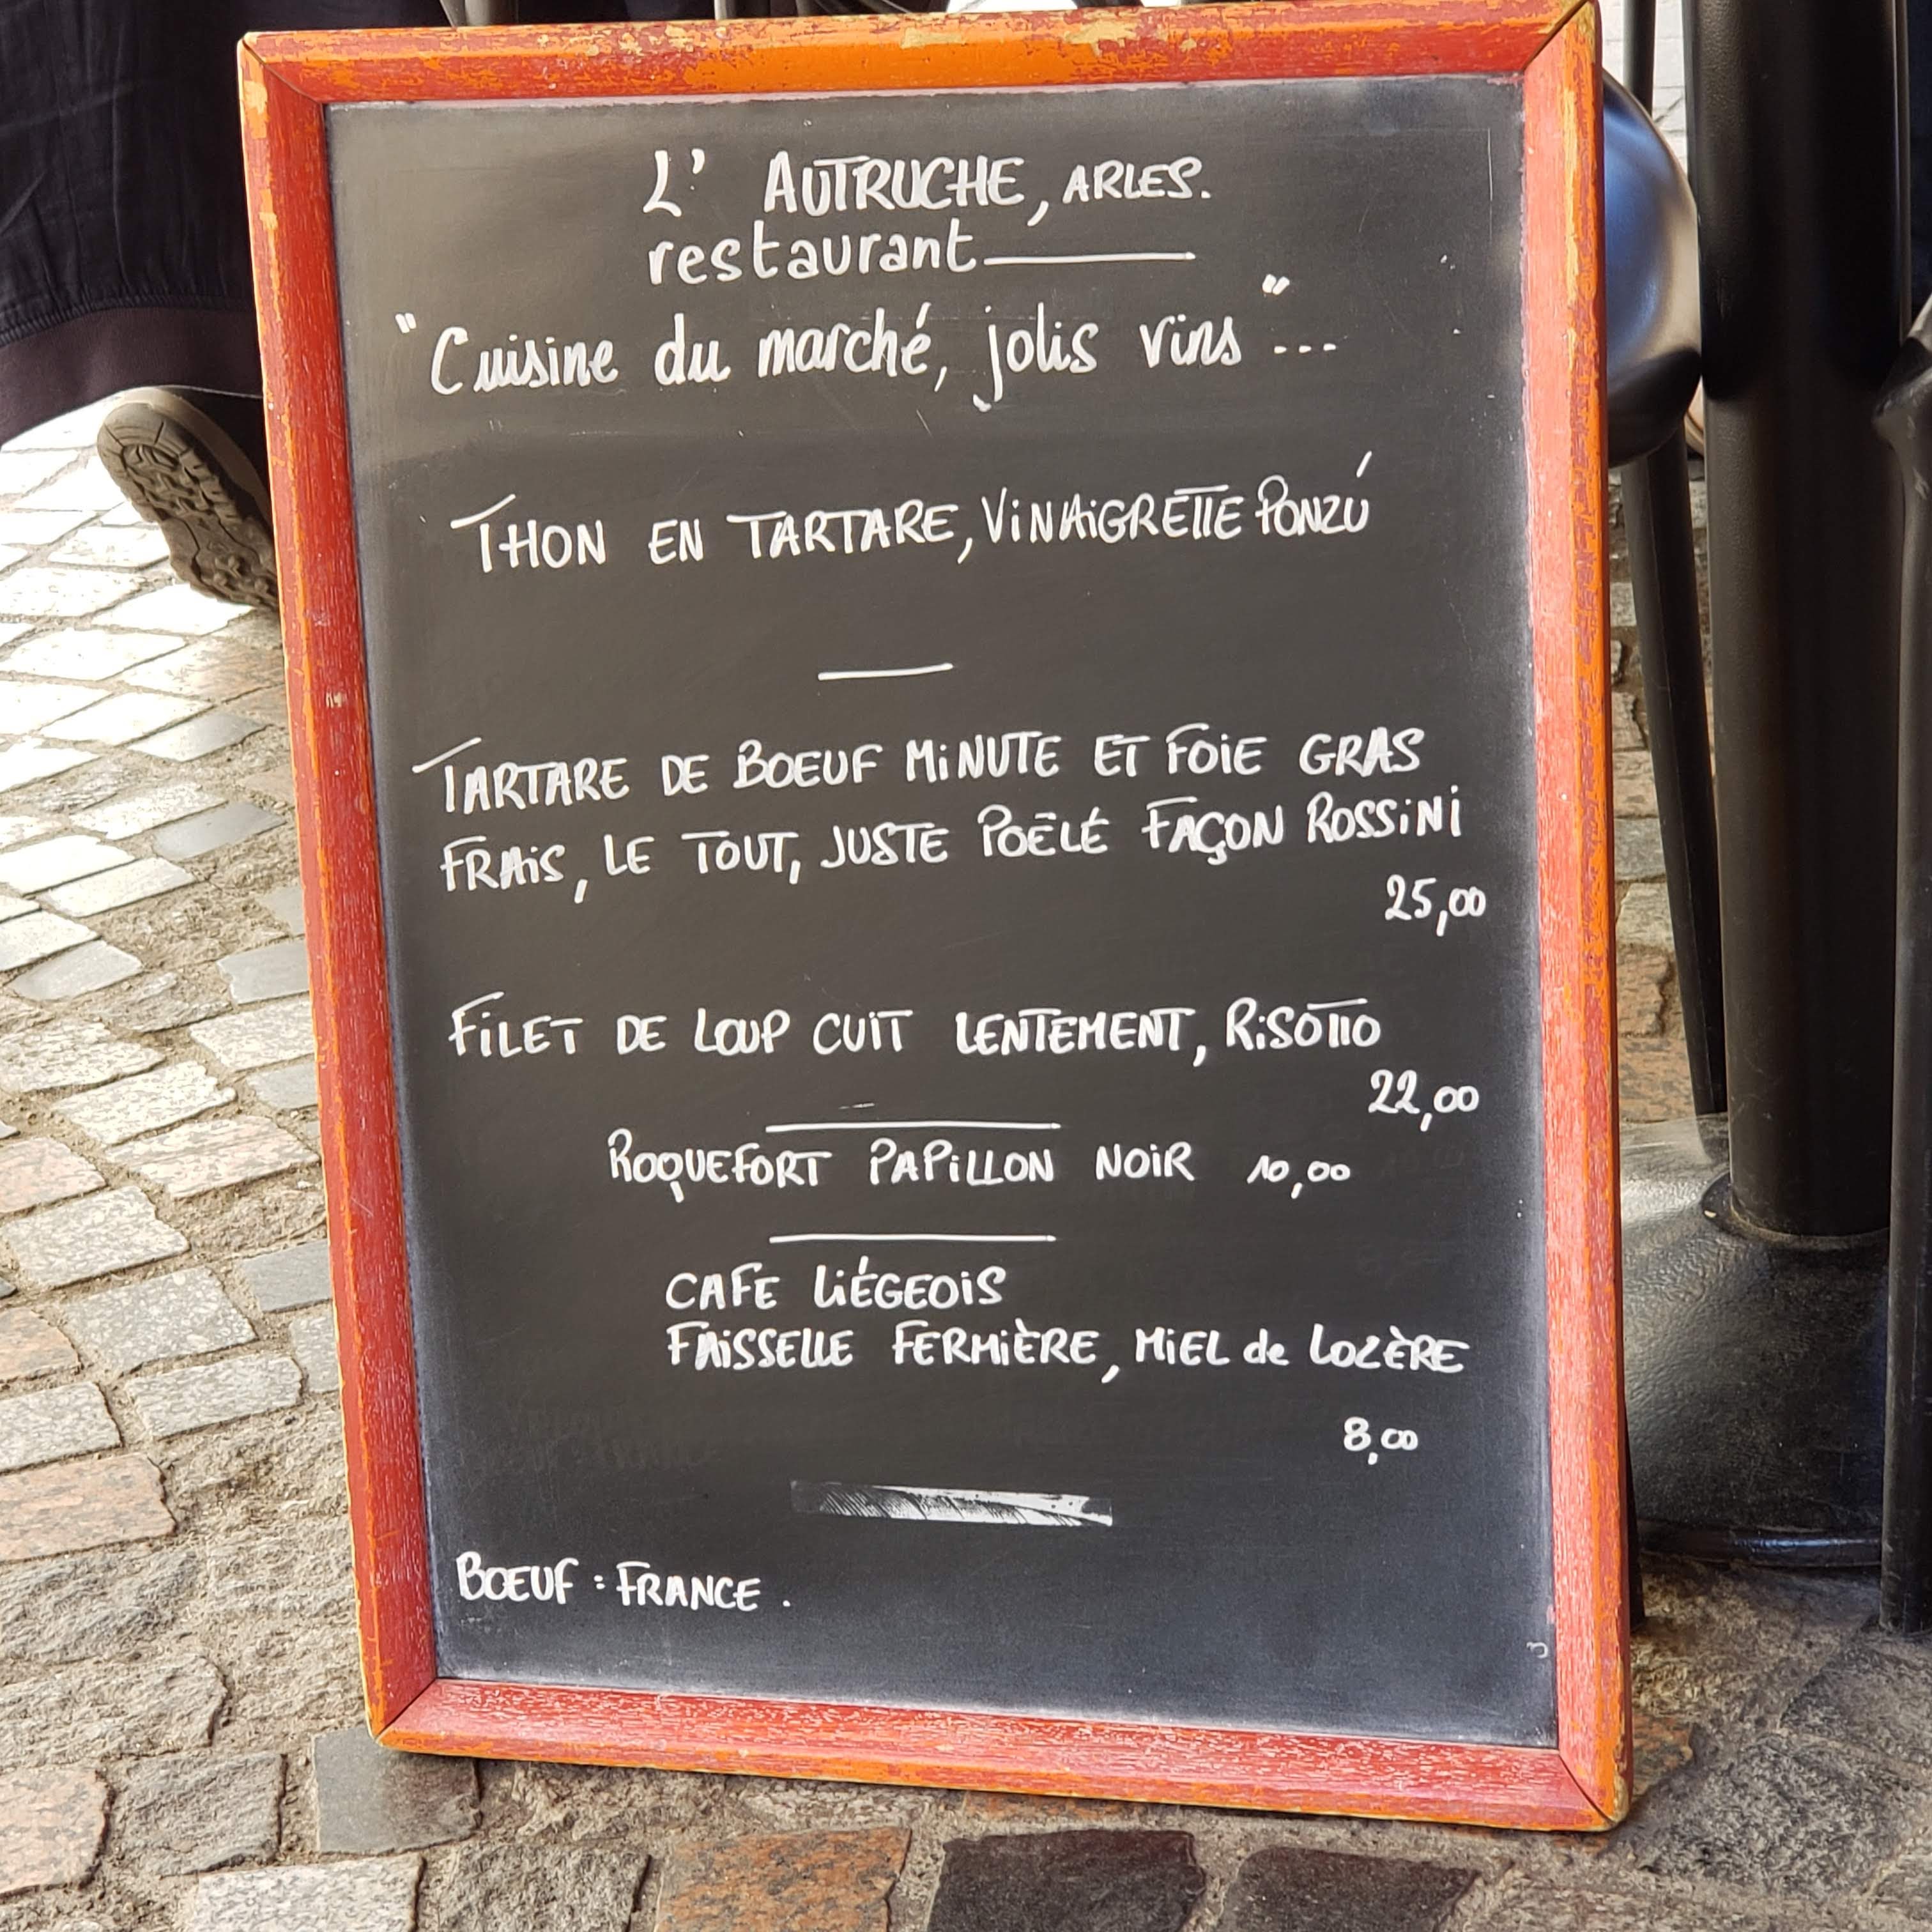 L' AUTRUCHE, ARLES.
restaurant
"Cuisine du marché, jolis vins"...
THON EN TARTARE, ViNAiGRETTE PONZÚ
TARTARE DE BOEUF MiNUTE ET FOiE GRAS
FRAiS, LE TOUT, JUSTE POËLÉ FAÇON ROSSiNi
25,00
FiLET DE LOUP CUiT LENTEMENT, RiSOTTO
22,00
ROQUEFORT PAPiLLON NOiR 10,00
CAFE LiÉGEOiS
FAiSSELLE FERMiÈRE, MiEL de LOZÈRE
8,00
BOEUF : FRANCE.